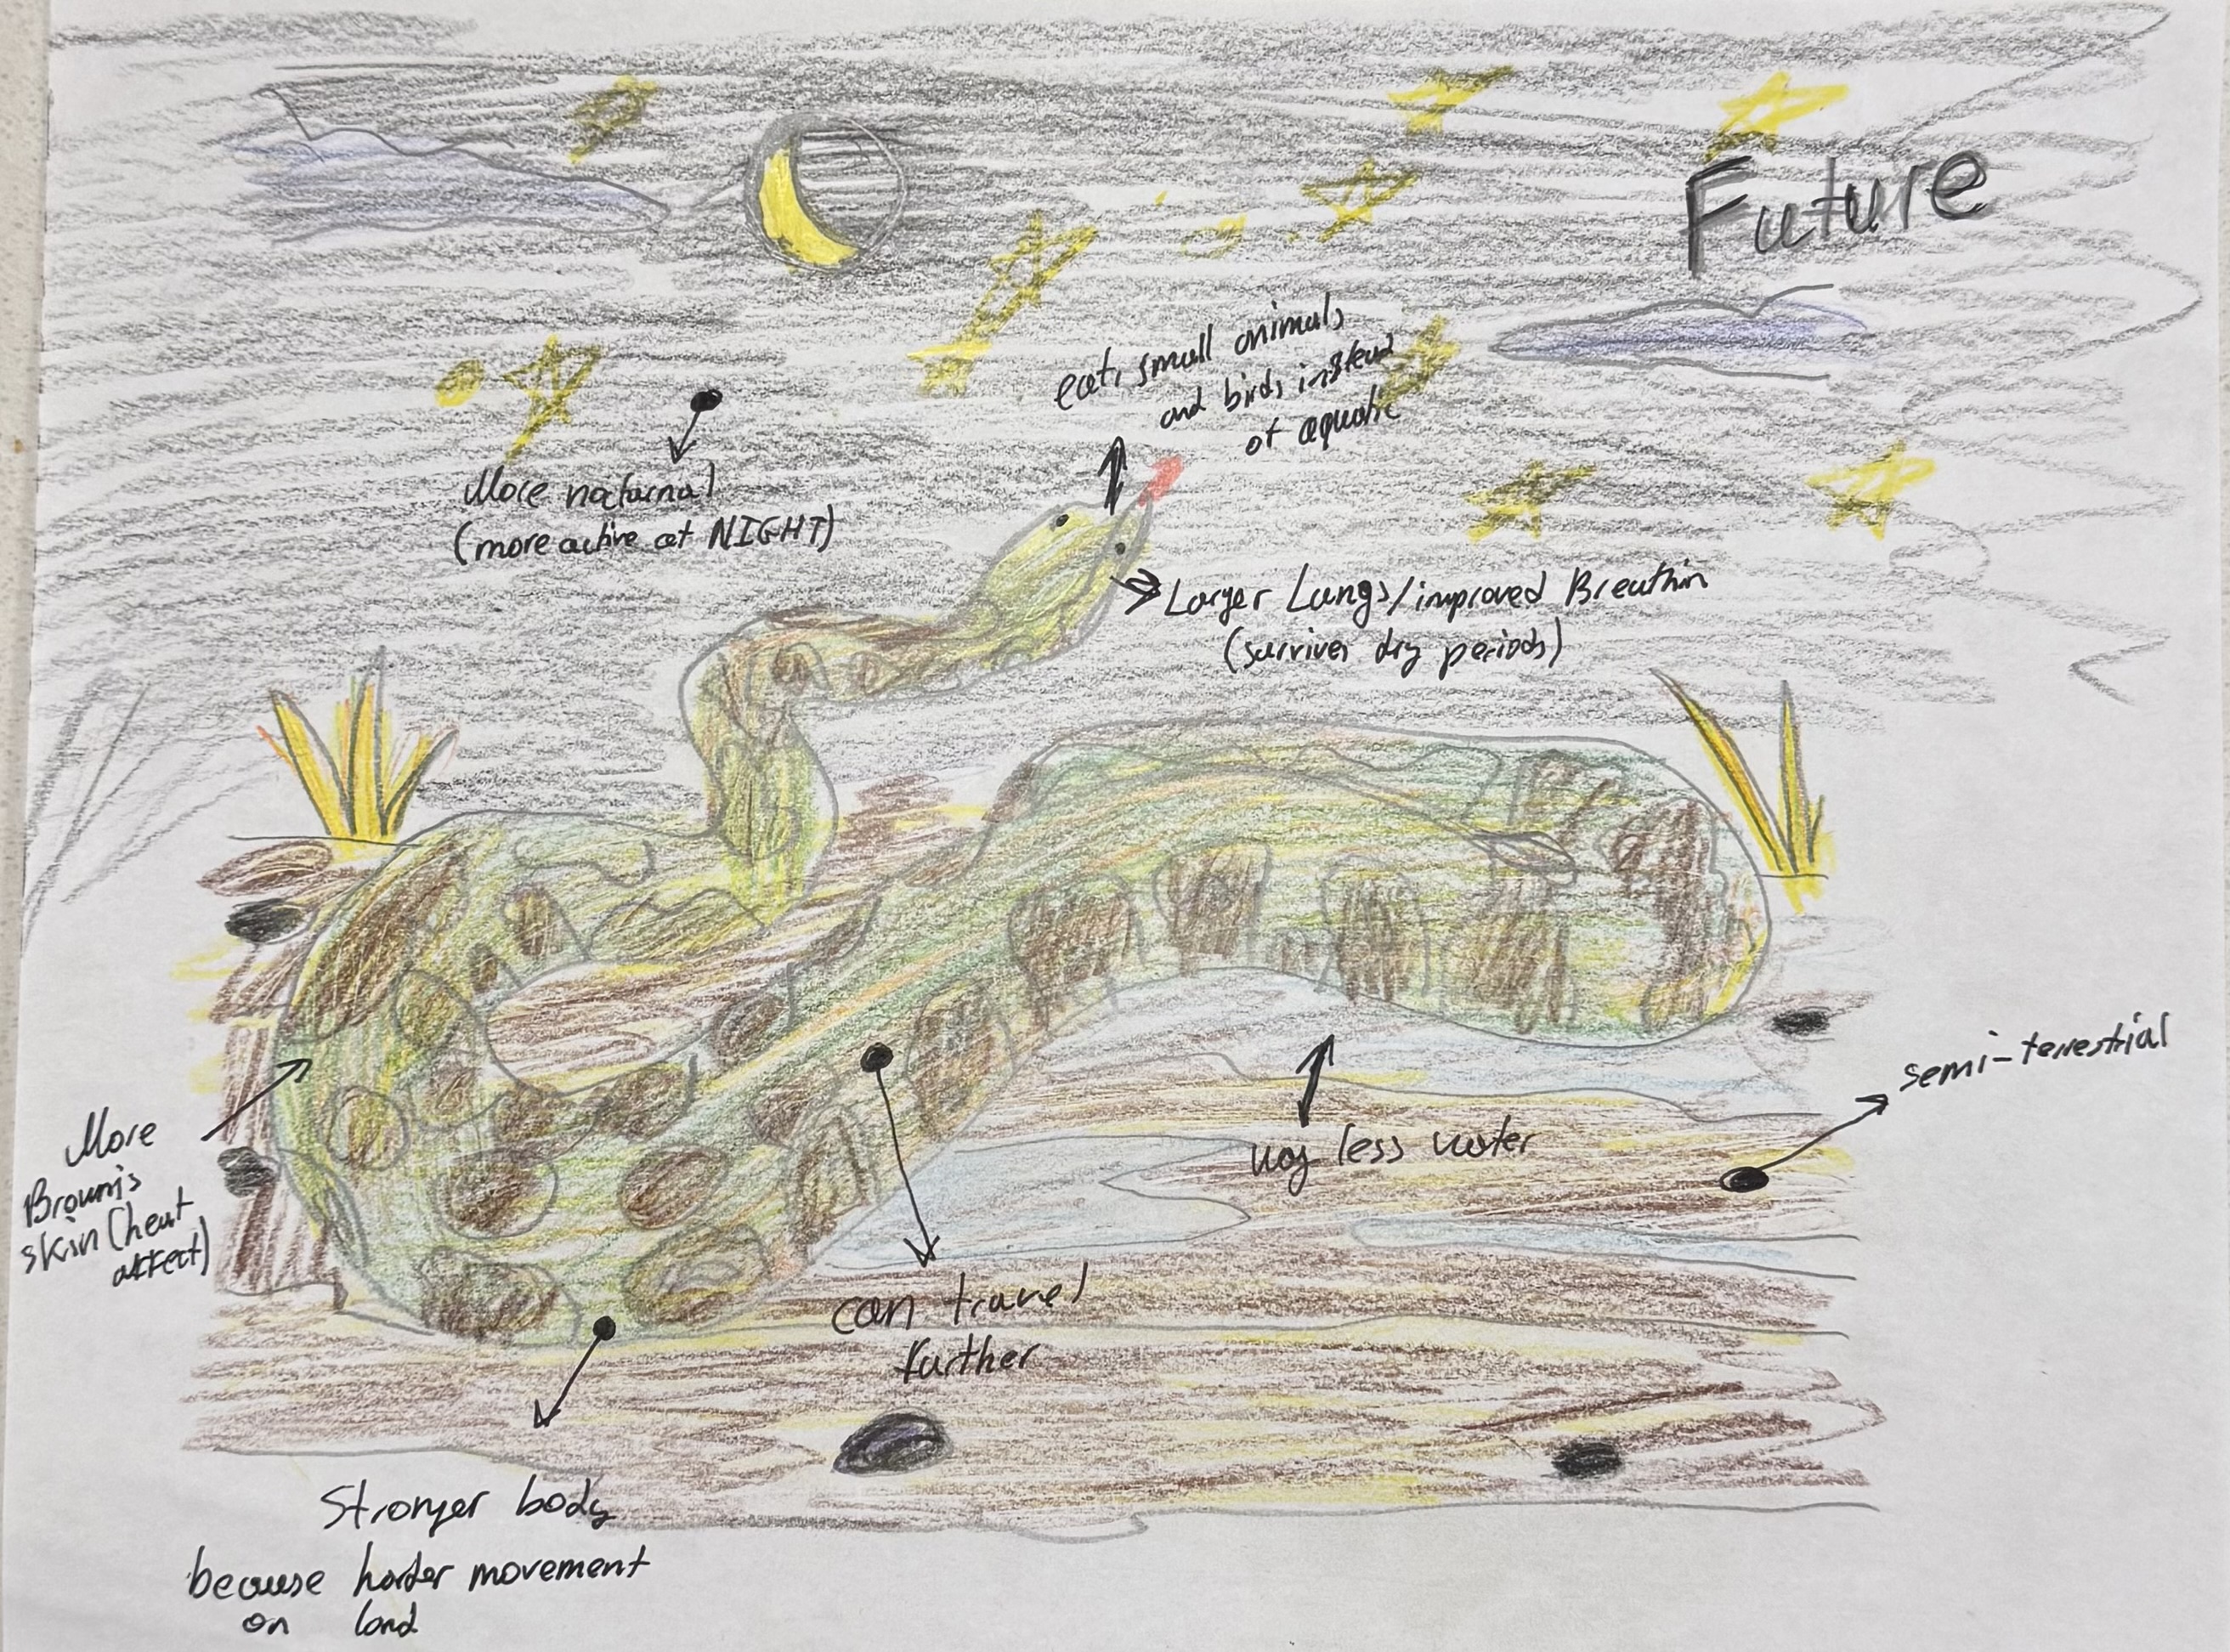 Future
eats small animals
and birds instead
of aquatic
More nocturnal
(more active at NIGHT)
Larger Lungs/improved Breathin
(survives dry periods)
semi-terrestrial
More
Brownis
skin (heat
affect)
way less water
can travel
further
Stronger body
because harder movement
on land